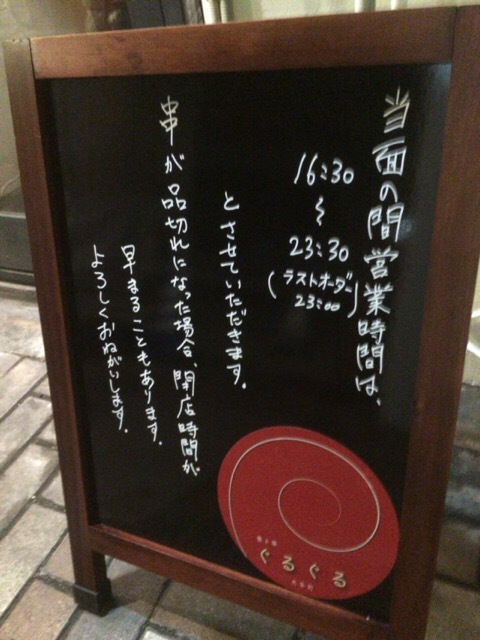 当面の間営業時間は、
16:30
〜
23:30
(ラストオーダー
23:00)
とさせていただきます。
串が品切れになった場合、閉店時間が
早まることもあります。
よろしくおねがいします。
ぐるぐる